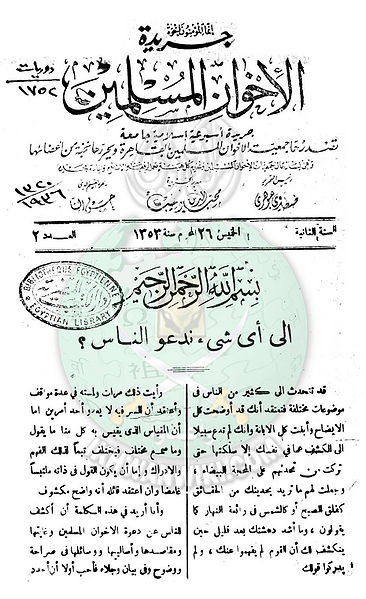 إنما المؤمنون إخوة
جريدة
الإخوان المسلمين
دوريات
١٧٥٢
جريدة أسبوعية إسلامية جامعة
تصدرها جمعية الإخوان المسلمين بالقاهرة ويحررها نخبة من أعضائها
طنطاوي جوهري
محب الدين الخطيب
السنة الثانية
الخميس ٢٦ المحرم سنة ١٣٥٣
العدد ٢
BIBLIOTHEQUE EGYPTIENNE
EGYPTIAN LIBRARY
بسم الله الرحمن الرحيم
الى أى شىء ندعو الناس ؟
قد تتحدث الى كثير من الناس فى
موضوعات مختلفة فتعتقد أنك قد أوضحت كل
الايضاح وأبنت كل الابانة وانك لم تدع سبيلا
الى الكشف عما فى نفسك إلا سلكتها حتى
تركت من تحدثهم على المحجة البيضاء ،
وجعلت لهم ما تريد بحديثك من الحقائق
كفلق الصبح أو كالشمس فى رائعة النهار كما
يقولون ، وما أشد دهشتك بعد قليل حين
ينكشف لك أن القوم لم يفهموا عنك ، ولم
يدركوا قولك
رأيت ذلك مرات ولمسته فى عدة مواقف
وأعتقد أن السر فيه لا يعدو أحد أمرين اما
أن المقياس الذى يقيس به كل منا ما يقول
وما يسمع مختلف فيختلف تبعا لذلك الفهم
والادراك ، وإما أن يكون القول فى ذاته ملتبسا
غامضا وان اعتقد قائله أنه واضح مكشوف
وأنا أريد فى هذه الكلمة أن أكشف
للناس عن دعوة الاخوان المسلمين وغايتها
ومقاصدها وأساليبها ووسائلها فى صراحة
ووضوح وفى بيان وجلاء فأحب أولا أن أحدد